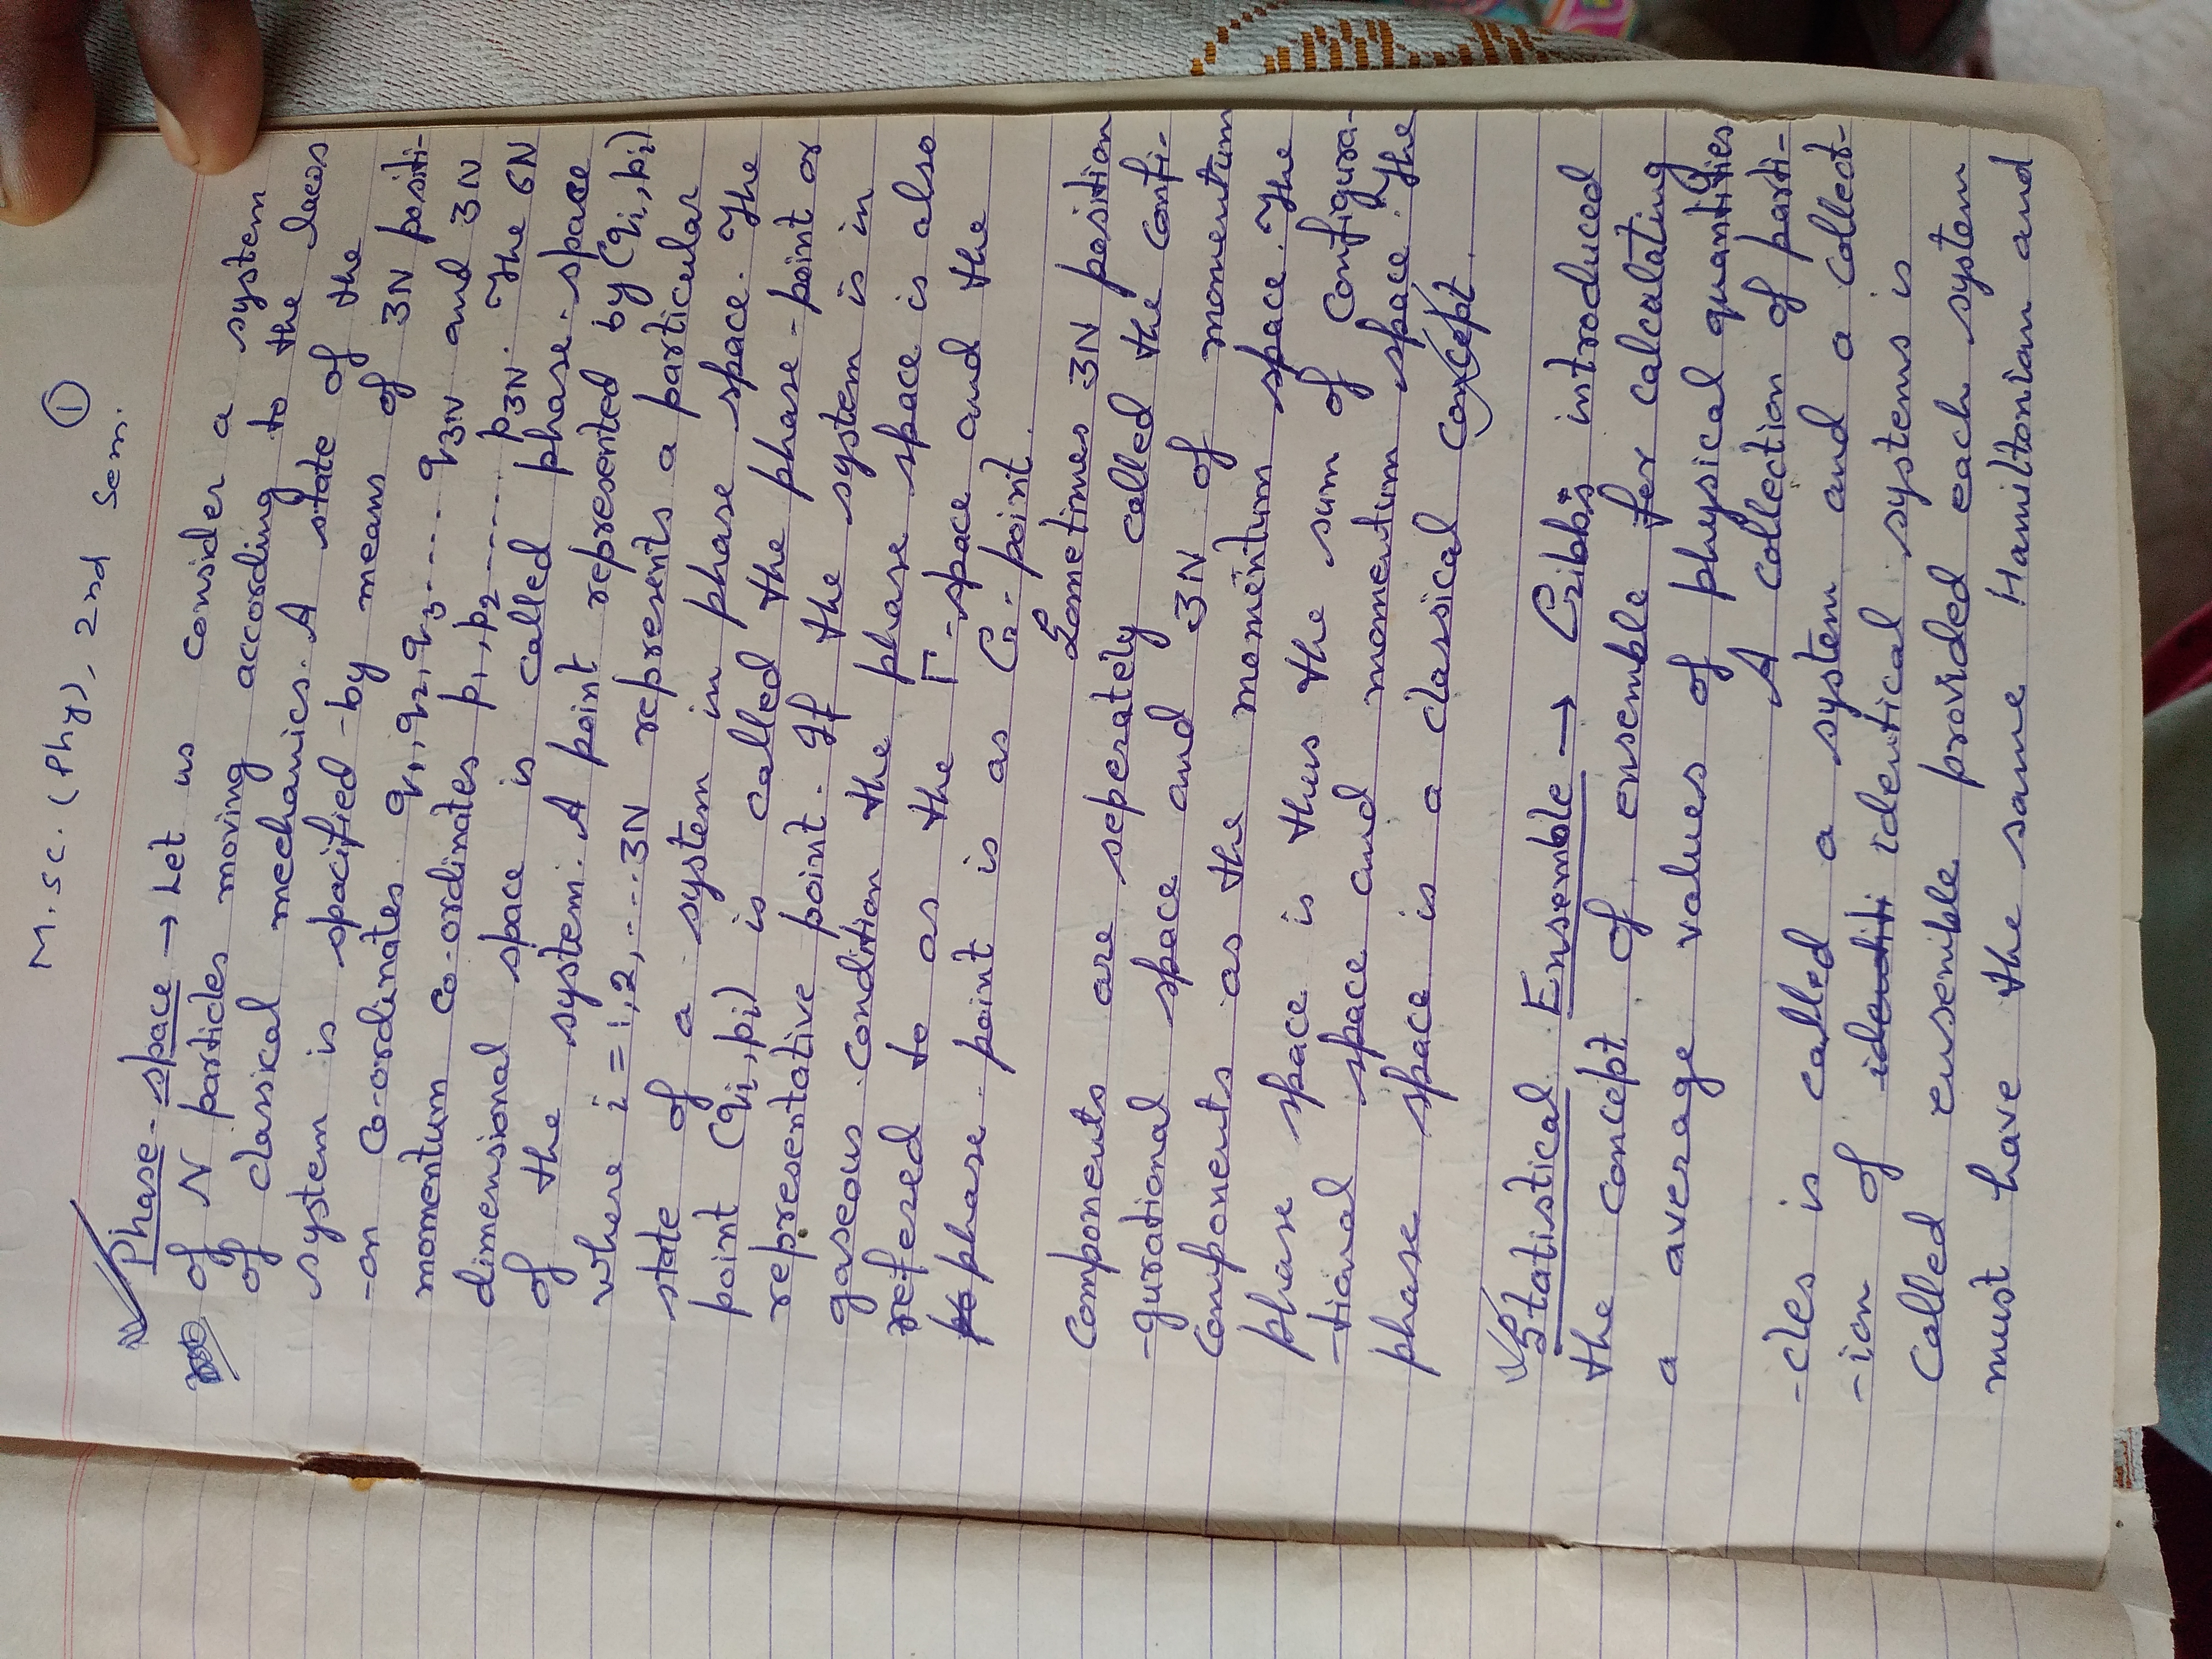 M.Sc. (Phy), 2nd Sem. ①
Phase-space → Let us consider a system
of N particles moving according to the laws
of classical mechanics. A state of the
system is spacified by means of 3N positi-
-on co-ordinates q1, q2, q3 ---- q3N and 3N
momentum co-ordinates p1, p2 ------ p3N. The 6N
dimensional space is called phase-space
of the system. A point represented by (qi, pi)
where i = 1, 2, ---- 3N represents a particular
state of a system in phase space. The
point (qi, pi) is called the phase-point or
representative point. If the system is in
gaseous condition the phase space is also
refered to as the Γ-space and the
phase point is as G-point.
Sometimes 3N position
components are seperately called the confi-
-gurational space and 3N of momentum
components as the momentum space. The
phase space is thus the sum of configura-
-tional space and momentum space. The
phase space is a classical concept.
Statistical Ensemble → Gibbs introduced
the concept of ensemble for calculating
a average values of physical quantities
A collection of parti-
-cles is called a system and a collect-
-ion of identical systems is
called ensemble provided each system
must have the same Hamiltonian and